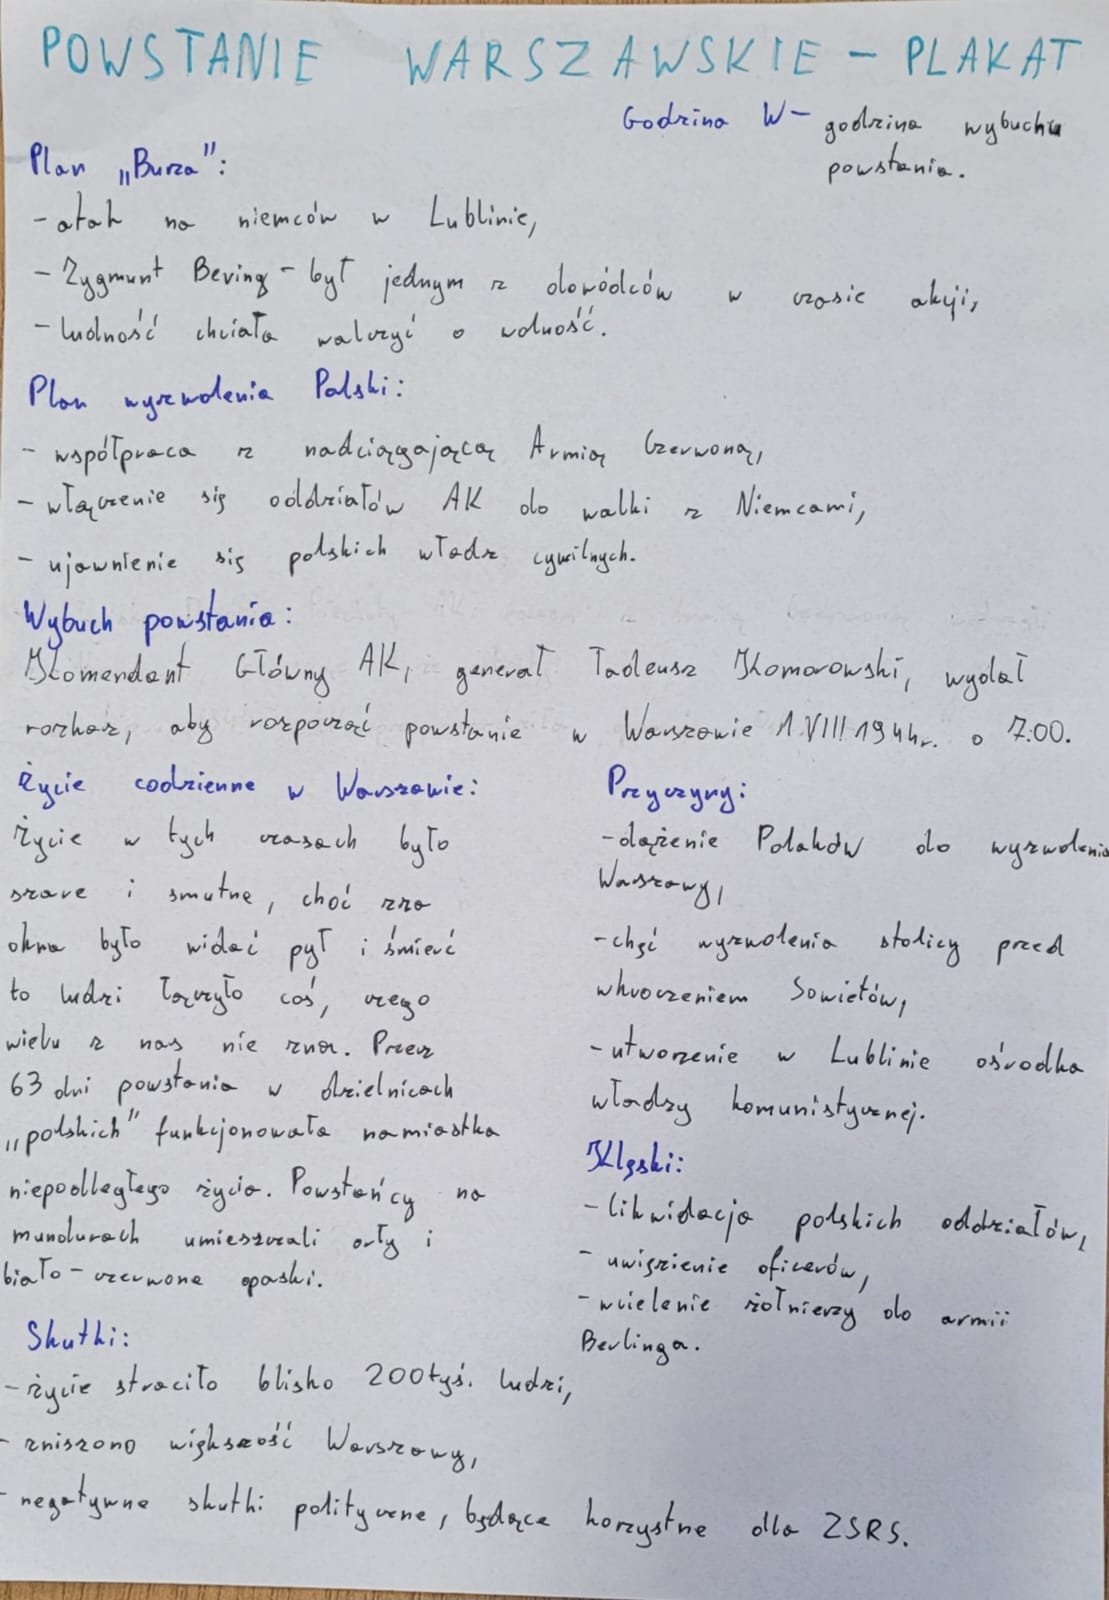 POWSTANIE WARSZAWSKIE – PLAKAT
Godzina W – godzina wybuchu
powstania.
Plan „Burza”:
- atak na niemców w Lublinie,
- Zygmunt Beving – był jednym z dowódców w czasie akcji,
- ludność chciała walczyć o wolność.
Plan wyzwolenia Polski:
- współpraca z nadciągającą Armią Czerwoną,
- włączenie się oddziałów AK do walki z Niemcami,
- ujawnienie się polskich władz cywilnych.
Wybuch powstania:
Komendant Główny AK, generał Tadeusz Komorowski, wydał
rozkaz, aby rozpocząć powstanie w Warszawie 1 VIII 1944r. o 7:00.
Życie codzienne w Warszawie:
Życie w tych czasach było
szare i smutne, choć zza
okna było widać pył i śmierć
to ludzi łączyło coś, czego
wielu z nas nie zna. Przez
63 dni powstania w dzielnicach
„polskich” funkcjonowała namiastka
niepodległego życia. Powstańcy na
mundurach umieszczali orły i
biało-czerwone opaski.
Przyczyny:
- dążenie Polaków do wyzwolenia
Warszawy,
- chęć wyzwolenia stolicy przed
wkroczeniem Sowietów,
- utworzenie w Lublinie ośrodka
władzy komunistycznej.
Klęski:
- likwidacja polskich oddziałów,
- uwięzienie oficerów,
- wcielenie żołnierzy do armii
Berlinga.
Skutki:
- życie straciło blisko 200tyś. ludzi,
- zniszono większość Warszawy,
- negatywne skutki polityczne, będące korzystne dla ZSRS.